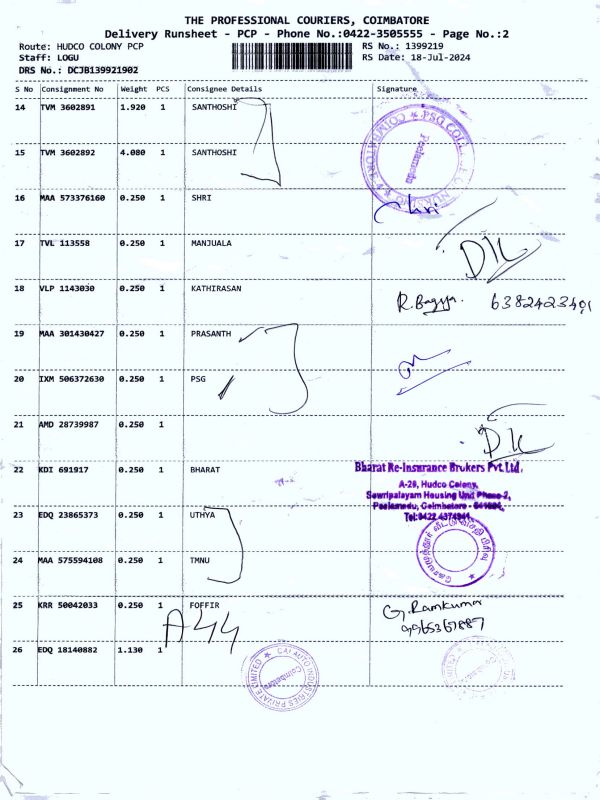 THE PROFESSIONAL COURIERS, COIMBATORE
Delivery Runsheet - PCP - Phone No.:0422-3505555 - Page No.:2
Route: HUDCO COLONY PCP RS No.: 1399219
Staff: LOGU RS Date: 18-Jul-2024
DRS No.: DCJB139921902
S No Consignment No Weight PCS Consignee Details Signature
14 TVM 3602891 1.920 1 SANTHOSHI
15 TVM 3602892 4.080 1 SANTHOSHI
COIMBATORE
Peelamedu
16 MAA 573376160 0.250 1 SHRI Shri
17 TVL 113558 0.250 1 MANJUALA
18 VLP 1143030 0.250 1 KATHIRASAN R. Bagya.
19 MAA 301430427 0.250 1 PRASANTH
20 IXM 506372630 0.250 1 PSG
21 AMD 28739987 0.250 1
22 KDI 691917 0.250 1 BHARAT Bharat Re-Insurance Brokers Pvt.Ltd.
A-29, Hudco Colony,
Sowripalayam Housing Unit Phase-2,
Peelamedu, Coimbatore -
23 EDQ 23865373 0.250 1 UTHYA
24 MAA 575594108 0.250 1 TMNU
25 KRR 50042033 0.250 1 FOFFIR G. Ramkumar
A44
26 EDQ 18140882 1.130 1
CAI AUTO INDUSTRIES PRIVATE LIMITED
Coimbatore